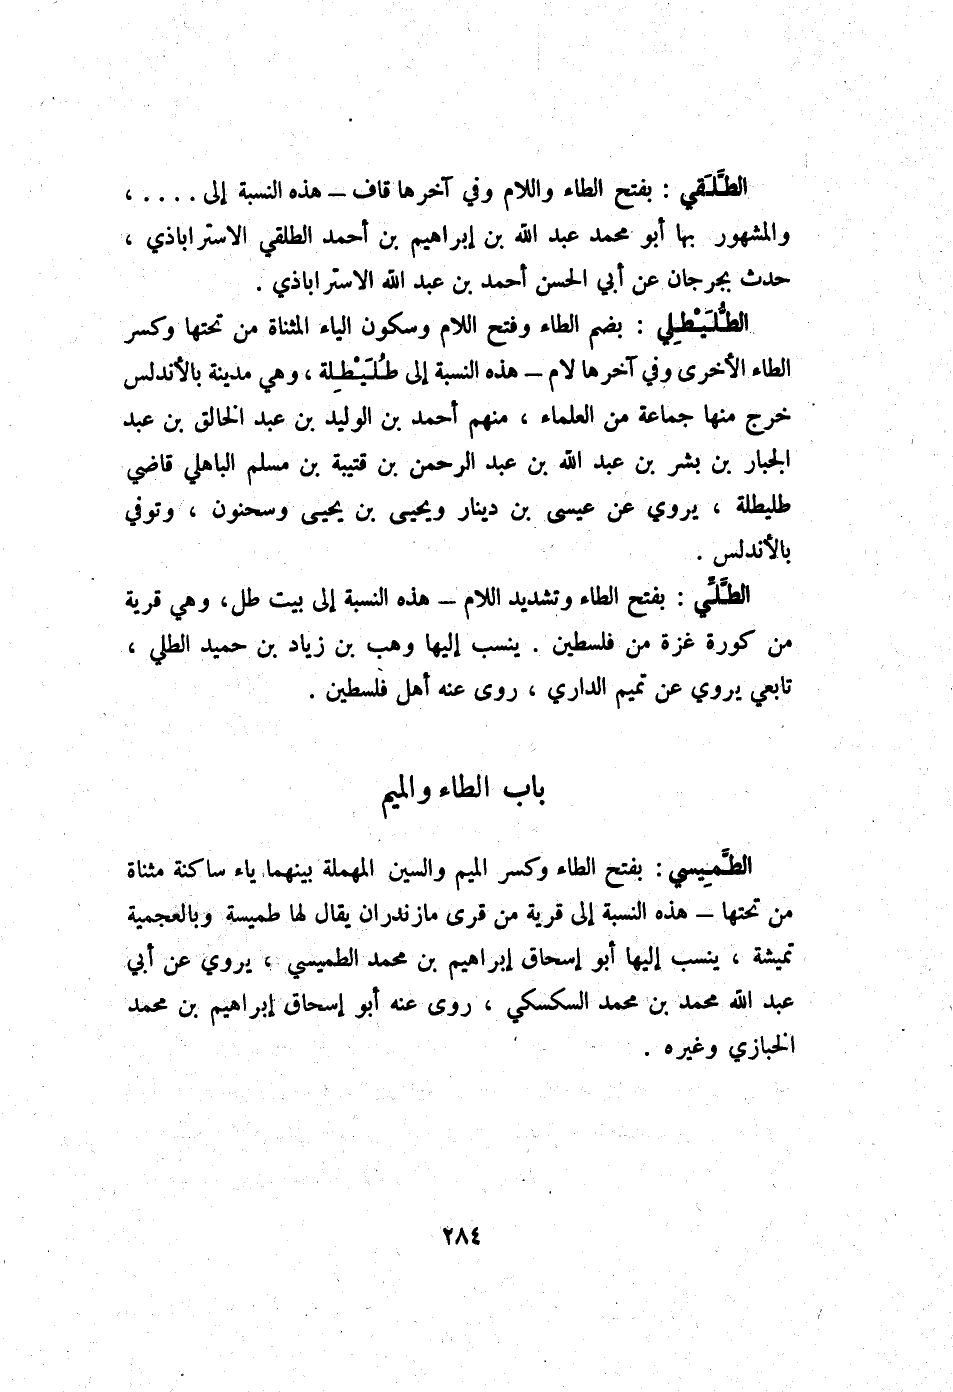 الطَّلَقي : بفتح الطاء واللام وفي آخرها قاف – هذه النسبة إلى . . . . ،
والمشهور بها أبو محمد عبد الله بن إبراهيم بن أحمد الطلقي الاستراباذي ،
حدث بجرجان عن أبي الحسن أحمد بن عبد الله الاستراباذي .
الطُّلَيْطِلي : بضم الطاء وفتح اللام وسكون الياء المثناة من تحتها وكسر
الطاء الأخرى وفي آخرها لام – هذه النسبة إلى طُلَيْطِلة ، وهي مدينة بالأندلس
خرج منها جماعة من العلماء ، منهم أحمد بن الوليد بن عبد الخالق بن عبد
الجبار بن بشر بن عبد الله بن عبد الرحمن بن قتيبة بن مسلم الباهلي قاضي
طليطلة ، يروي عن عيسى بن دينار ويحيى بن يحيى وسحنون ، وتوفي
بالأندلس .
الطَّلّي : بفتح الطاء وتشديد اللام – هذه النسبة إلى بيت طل، وهي قرية
من كورة غزة من فلسطين . ينسب إليها وهب بن زياد بن حميد الطلي ،
تابعي يروي عن تميم الداري ، روى عنه أهل فلسطين .
باب الطاء والميم
الطَّمِيسي : بفتح الطاء وكسر الميم والسين المهملة بينهما ياء ساكنة مثناة
من تحتها – هذه النسبة إلى قرية من قرى مازندران يقال لها طميسة وبالعجمية
تميشة ، ينسب إليها أبو إسحاق إبراهيم بن محمد الطميسي ، يروي عن أبي
عبد الله محمد بن محمد السكسكي ، روى عنه أبو إسحاق إبراهيم بن محمد
الخبازي وغيره .
٢٨٤